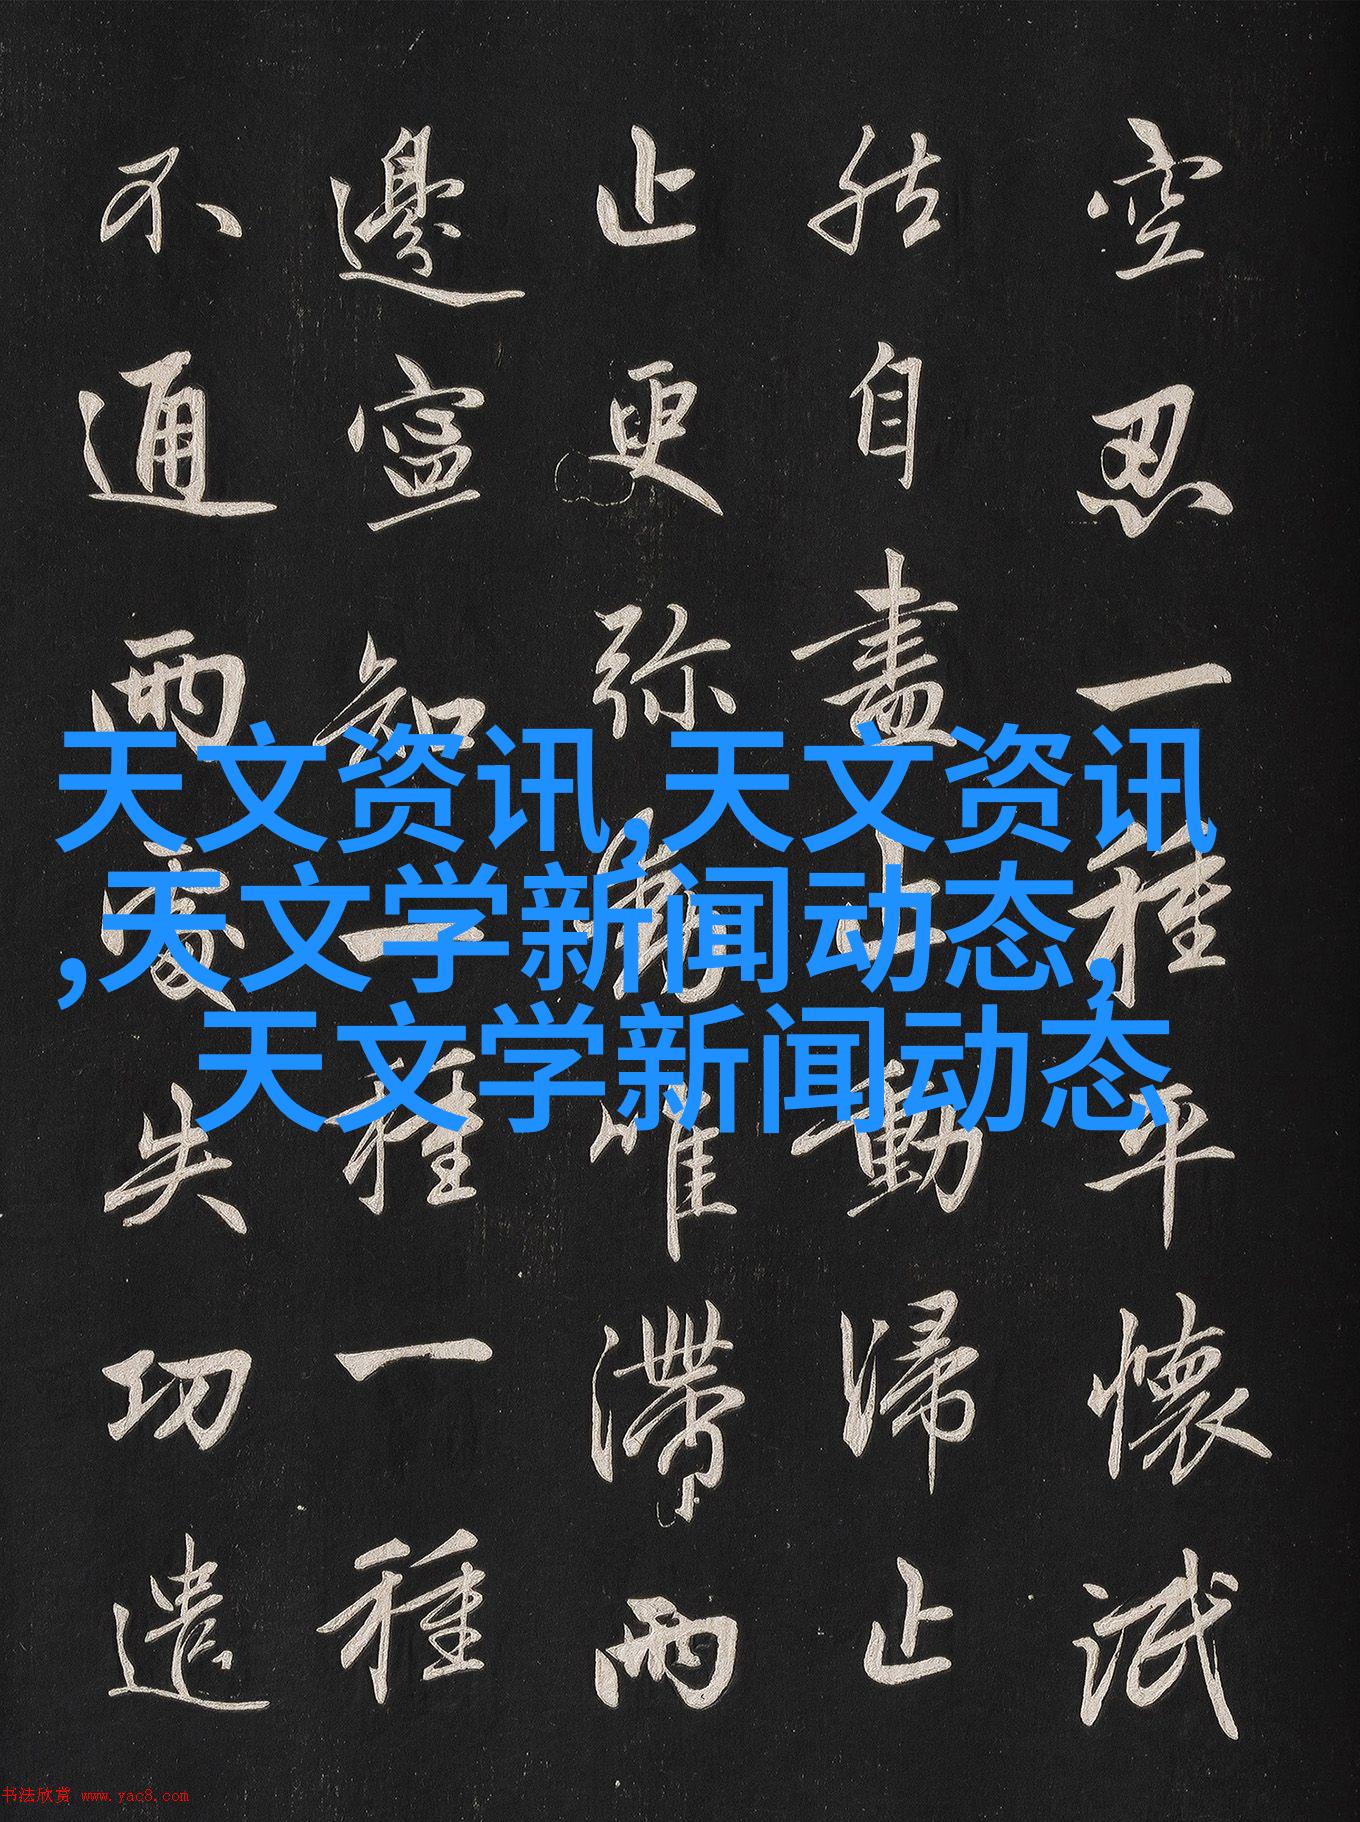 空忍一種平懷泯
然自盡止動歸止
止更弥動唯滯兩
邊寧知一種一種
不通兩處失功遣
天文资讯,天文资讯
,天文学新闻动态,
天文学新闻动态
书法欣赏 www.yac8.com